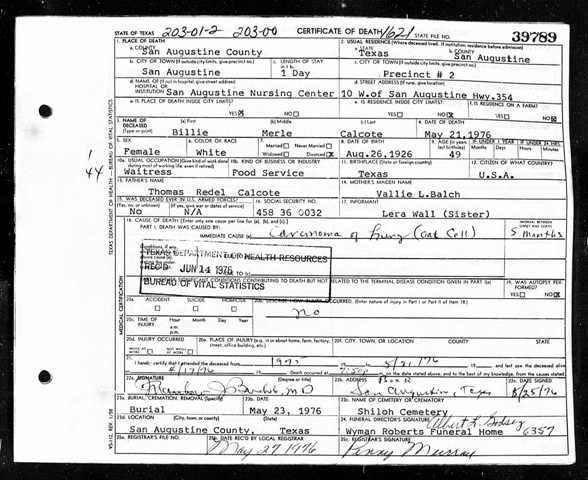 STATE OF TEXAS 203-01-2 203-00 CERTIFICATE OF DEATH 1621 STATE FILE NO. 39789
1. PLACE OF DEATH
a. COUNTY San Augustine County
2. USUAL RESIDENCE (Where deceased lived. If institution: residence before admission)
a. STATE Texas b. COUNTY San Augustine
b. CITY OR TOWN (If outside city limits, give precinct no.) San Augustine
c. LENGTH OF STAY in 1 b. 1 Day
c. CITY OR TOWN (If outside city limits, give precinct no.) Precinct # 2
d. NAME OF (If not in hospital, give street address) HOSPITAL OR INSTITUTION San Augustine Nursing Center
d. STREET ADDRESS 10 W.of San Augustine Hwy.354
e. IS PLACE OF DEATH INSIDE CITY LIMITS? YES NO
e. IS RESIDENCE INSIDE CITY LIMITS? YES NO
f. IS RESIDENCE ON A FARM? YES NO
3. NAME OF DECEASED (Type or print) (a) First Billie (b) Middle Merle (c) Last Calcote
4. DATE OF DEATH May 21,1976
5. SEX Female
6. COLOR OR RACE White
7. Married Never Married Widowed Divorced
8. DATE OF BIRTH Aug.26,1926
9. AGE (In years last birthday) 49
IF UNDER 1 YEAR Months Days
IF UNDER 24 HRS. Hours Min.
10a. USUAL OCCUPATION (Give kind of work done during most of working life, even if retired) Waitress
10b. KIND OF BUSINESS OR INDUSTRY Food Service
11. BIRTHPLACE (State or foreign country) Texas
12. CITIZEN OF WHAT COUNTRY? U.S.A.
13. FATHER'S NAME Thomas Redel Calcote
14. MOTHER'S MAIDEN NAME Vallie L.Balch
15. WAS DECEASED EVER IN U.S. ARMED FORCES? (Yes, no, or unknown) No (If yes, give war or dates of service) N/A
16. SOCIAL SECURITY NO. 458 36 0032
17. INFORMANT Lera Wall (Sister)
18. CAUSE OF DEATH (Enter only one cause per line for (a), (b), and (c).)
PART I. DEATH WAS CAUSED BY:
IMMEDIATE CAUSE (a) Carcinoma of Lung (Oat Cell)
INTERVAL BETWEEN ONSET AND DEATH 5 months
TEXAS DEPARTMENT OF HEALTH RESOURCES
REC'D JUN 14 1976
BUREAU OF VITAL STATISTICS
SIGNIFICANT CONDITIONS CONTRIBUTING TO DEATH BUT NOT RELATED TO THE TERMINAL DISEASE CONDITION GIVEN IN PART I(a)
19. WAS AUTOPSY PERFORMED? YES NO
20a. ACCIDENT SUICIDE HOMICIDE
20b. DESCRIBE HOW INJURY OCCURRED. (Enter nature of injury in Part I or Part II of item 18.)
no
20c. TIME OF INJURY Hour Month Day Year
a.m.
p.m.
20d. INJURY OCCURRED WHILE AT WORK NOT WHILE AT WORK
20e. PLACE OF INJURY (e.g. in or about home, farm, factory, street, office building, etc.)
20f. CITY, TOWN, OR LOCATION COUNTY STATE
21. I hereby certify that I attended the deceased from 5/21/76
Death occurred at on the date stated above, and to the best of my knowledge, from the causes stated
22a. SIGNATURE (Degree or title) MD
22b. ADDRESS Box San Augustine, Texas
22c. DATE SIGNED
23a. BURIAL, CREMATION, REMOVAL (Specify) Burial
23b. DATE May 23, 1976
23c. NAME OF CEMETERY OR CREMATORY Shiloh Cemetery
23d. LOCATION (City, town, or county) (State) San Augustine County, Texas
24. FUNERAL DIRECTOR'S SIGNATURE Albert L Godsey 6357
Wyman Roberts Funeral Home
25a. REGISTRAR'S FILE NO.
25b. DATE REC'D BY LOCAL REGISTRAR May 27 1976
25c. REGISTRAR'S SIGNATURE Penny Murray
TEXAS DEPARTMENT OF HEALTH — BUREAU OF VITAL STATISTICS
MEDICAL CERTIFICATION